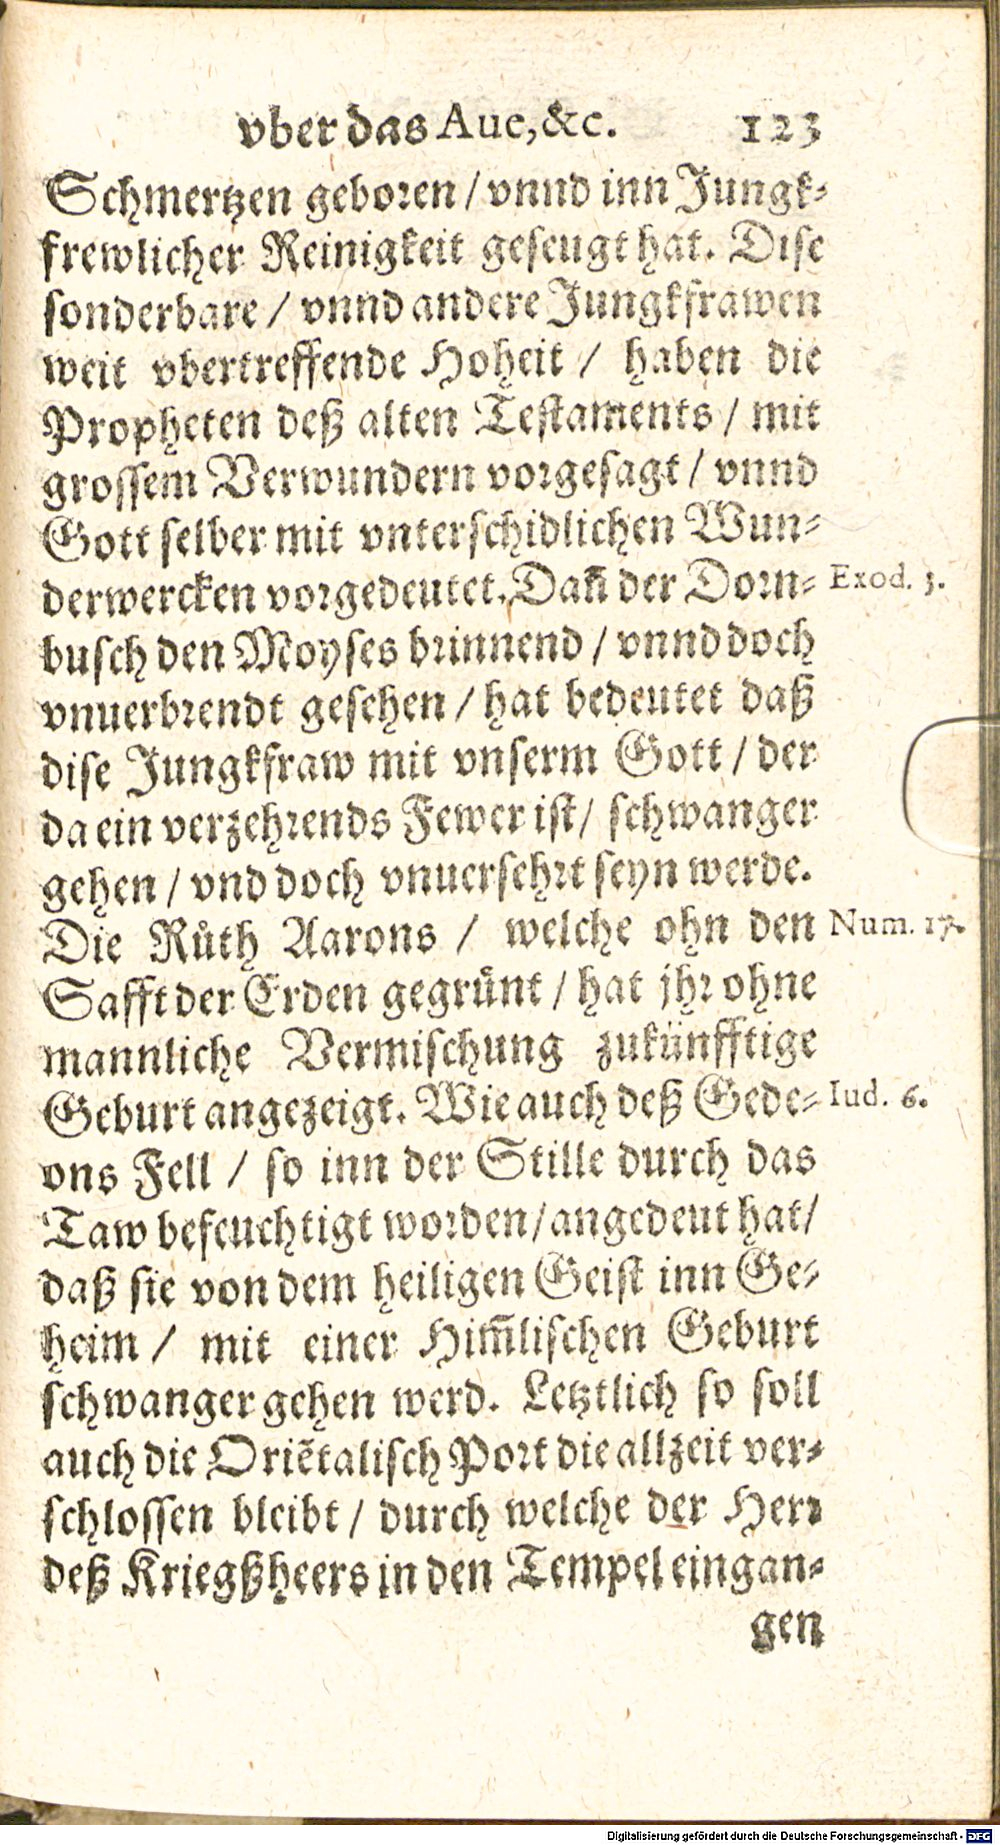 vber das Aue, &c. 123
Schmertzen geboren / vnnd inn Jungk-
frewlicher Reinigkeit geseugt hat. Dise
sonderbare / vnnd andere Jungkfrawen
weit vbertreffende Hoheit / haben die
Propheten deß alten Testaments / mit
grossem Verwundern vorgesagt / vnnd
Gott selber mit vnterschidlichen Wun-
derwercken vorgedeutet. Dañ der Dorn- Exod. 3.
busch den Moyses brinnend / vnnd doch
vnuerbrendt gesehen / hat bedeutet daß
dise Jungkfraw mit vnserm Gott / der
da ein verzehrends Fewer ist / schwanger
gehen / vnd doch vnuersehrt seyn werde.
Die Růth Aarons / welche ohn den Num. 17.
Safft der Erden gegrünt / hat jhr ohne
mannliche Vermischung zukünfftige
Geburt angezeigt. Wie auch deß Gede- Iud. 6.
ons Fell / so inn der Stille durch das
Taw befeuchtigt worden / angedeut hat /
daß sie von dem heiligen Geist inn Ge-
heim / mit einer Him̃lischen Geburt
schwanger gehen werd. Letztlich so soll
auch die Oriẽtalisch Port die allzeit ver-
schlossen bleibt / durch welche der Herr
deß Kriegßheers in den Tempel eingan-
gen
Digitalisierung gefördert durch die Deutsche Forschungsgemeinschaft - DFG